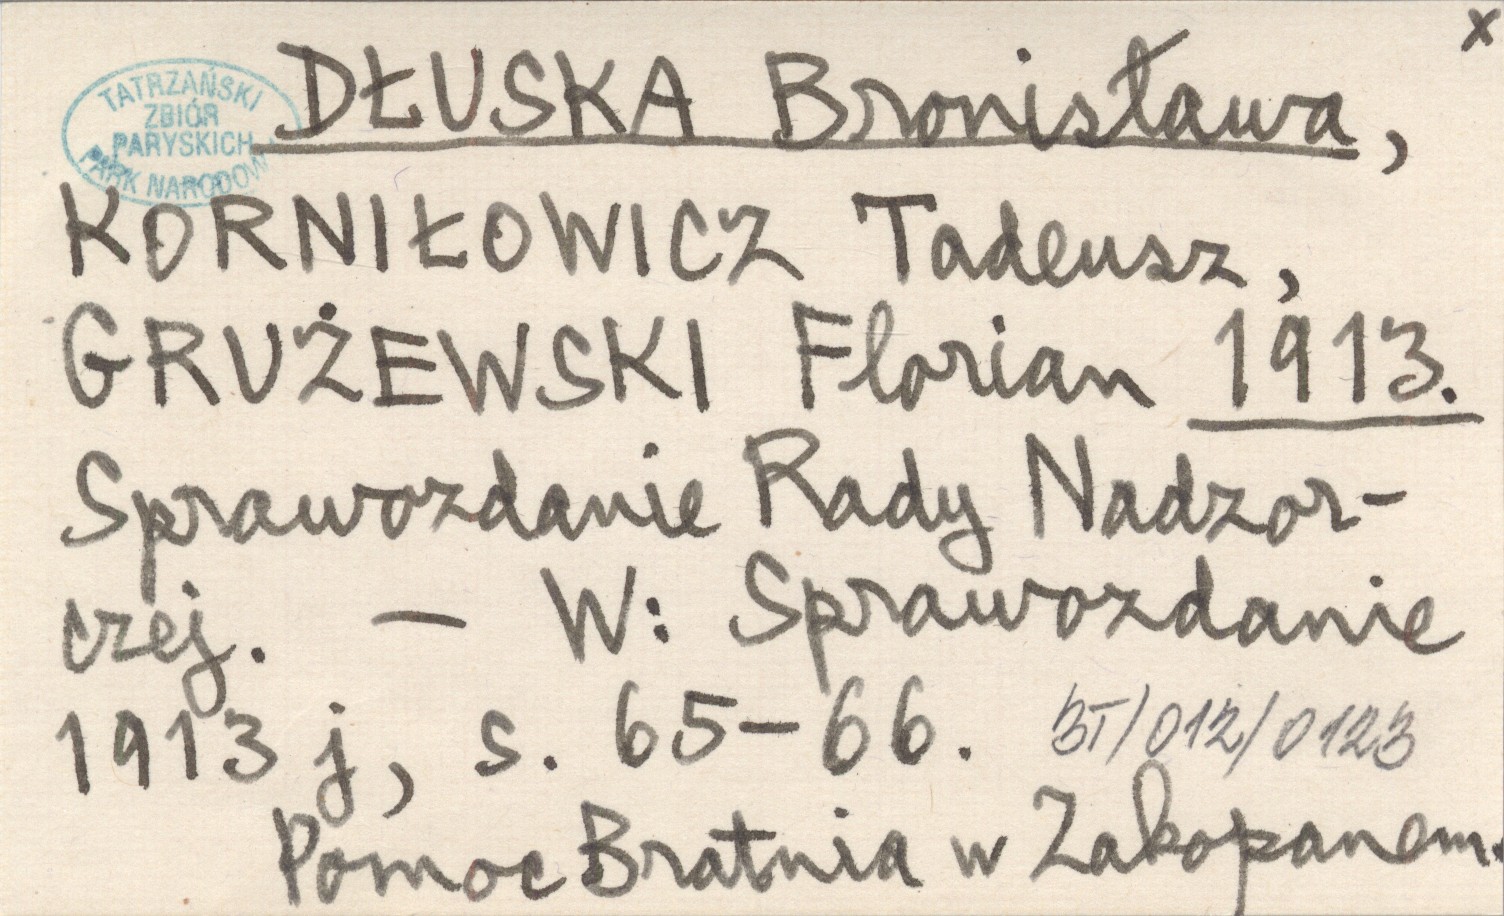 x
TATRZAŃSKI
ZBIÓR
PARYSKICH
PARK NARODOW
DŁUSKA Bronisława,
KORNIŁOWICZ Tadeusz,
GRUŻEWSKI Florian 1913.
Sprawozdanie Rady Nadzor-
czej. — W: Sprawozdanie
1913 j, s. 65-66. BT/012/0123
Pomoc Bratnia w Zakopanem.